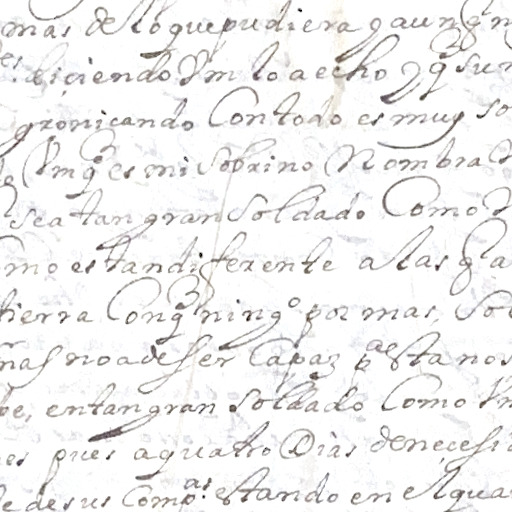 mas de lo que pudiera y aunq̃
diçiendo Vm lo a echo y q̃ su
gronicando Con todo es muy so
Vm q̃ es mi sobrino Nombra
sea tan gran soldado Como
mo es tan diferente a las q̃ a
tierra Con q̃ ning.º por mas, sol
ñas no a de ser Capaz p.ª esta nos
be, en tan gran soldado Como Vm
es pues a quatro Dias de necesi
de sus Comp.as estando en el qua